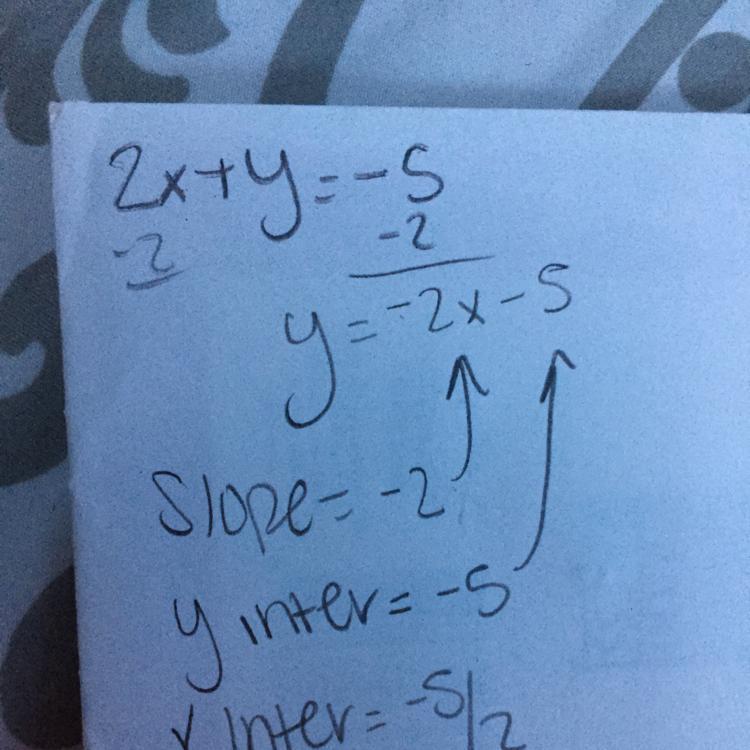 2x+y=-5
-2 -2
y=-2x-5
slope=-2
y inter=-5
x inter=-5/2